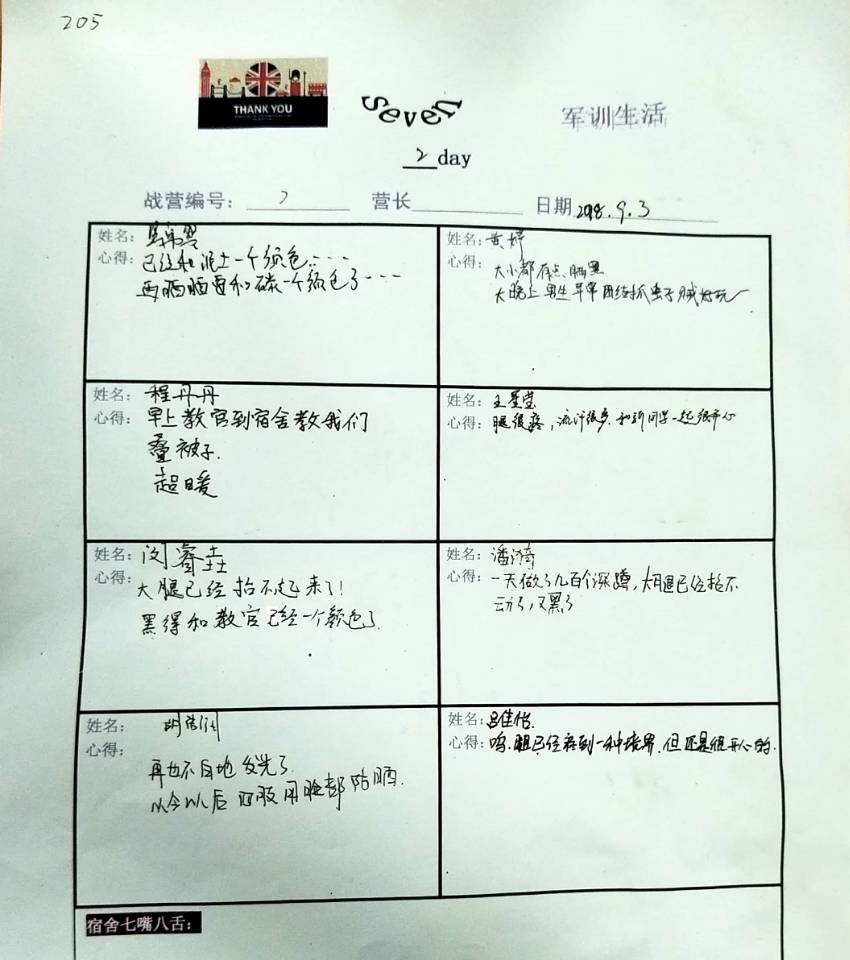 205
THANK YOU
seven
军训生活
2 day
战营编号： 7 营长 日期 2018.9.3
姓名：
心得：已经和泥土一个颜色……
再晒晒要和碳一个颜色了---
姓名：黄婷
心得：大小都有点晒黑
大晚上男生女军团结抓虫子贼好玩
姓名：程丹丹
心得：早上教官到宿舍教我们
叠被子.
超暖
姓名：王星莹
心得：腿很疼，流汗很多.和新同学一起很开心
姓名：闵睿垚
心得：大腿已经抬不起来了！
黑得和教官已经一个颜色了
姓名：潘漪
心得：一天做了几百个深蹲，大腿已经抬不
动了，又黑了
姓名：胡
心得：
再也不白地发光了
从今以后 用脸都防晒.
姓名：吕佳怡.
心得：呜.腿已经疼到一种境界.但还是很开心的.
宿舍七嘴八舌：